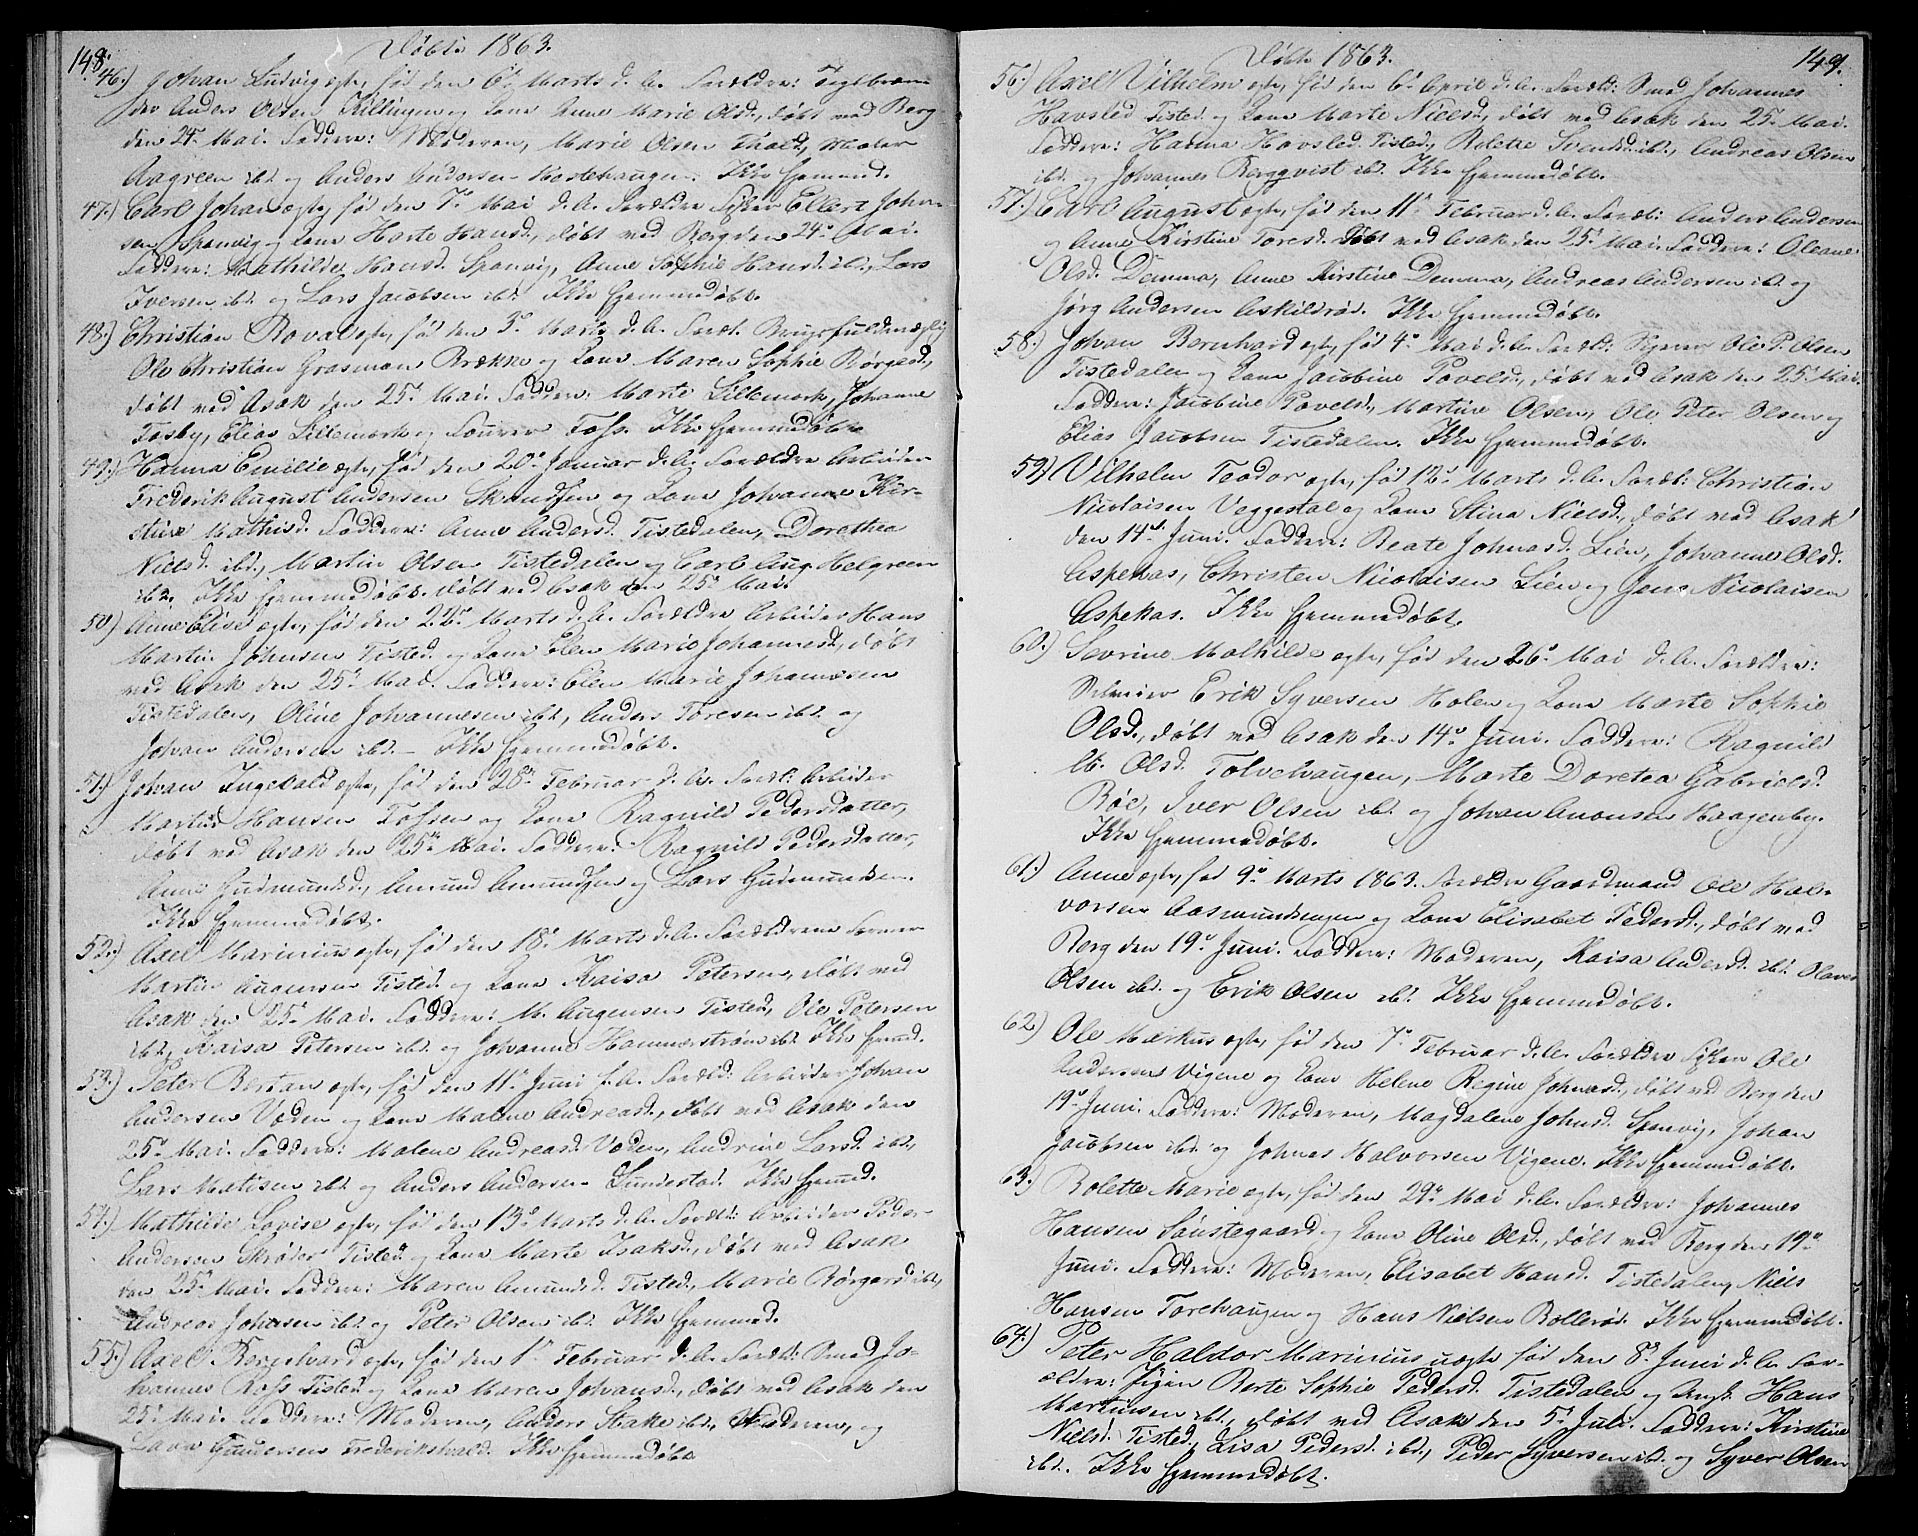 148.
Døbte 1863.
46.) Johan Ludvig ægte, fød den 6te Marts d. A. Forældre: Teglbræn-
der Anders Olsen Killingen og Kone Anne Marie Olsd., døbt ved Berg
den 24de Mai. Faddere: Moderen, Marie Olsen
Aagreen ibd. og Anders Andersen Hestehaugen. Ikke hjemmed.
47.) Carl Johan ægte, fød den 7de Mai d. A. Forældre Ellert John-
sen Sponvig og Kone Marte Hansd., døbt ved Berg den 24de Mai.
Faddere: Mathilde Hansd. Sponvig, Anne Sophie Hansd. ibd., Lars
Iversen ibd. og Lars Jacobsen ibd. Ikke hjemmedøbt.
48.) Christian ægte, fød den 5te Marts d. A. Foræld. Brugsfuldmægtig
Ole Christian Grasman Brække og Kone Maren Sophie Børgesd.,
døbt ved Asak den 25de Mai. Faddere: Marte Lillemork, Johanne
Fosby, Elias Lillemork og Foss. Ikke hjemmedøbt.
49.) Hanna Emilie ægte, fød den 20de Januar d. A. Forældre Arbeider
Frederik August Andersen og Kone Johanne Kir-
stine Mathisd. Faddere: Anne Andersd. Tistedalen, Dorethea
Nielsd. ibd., Martin Olsen Tistedalen og Carl Aug. Helgreen
ibd. Ikke hjemmedøbt. døbt ved Asak den 25de Mai.
50.) Anne Elise ægte, fød den 22de Marts d. A. Forældre Arbeider Hans
Martin Johnsen Tisted. og Kone Elen Marie Johannesd., døbt
ved Asak den 25de Mai. Faddere: Elen Marie Johannesen
Tistedalen, Oline Johannesen ibd., Anders Toresen ibd. og
Johan Andersen ibd. – Ikke hjemmedøbt.
51.) Johan Ingevald ægte, fød den 28de Februar d. A. Foræld: Arbeider
Martin Hansen Fossen og Kone Ragnild Pedersdatter,
døbt ved Asak den 25de Mai. Faddere: Ragnild Pedersdatter,
Anne Gudmundsd., Amund Amundsen og Lars Gudmundsen.
Ikke hjemmedøbt.
52.) Axel Marinius ægte, fød den 18de Marts d. A. Forældrene Former
Martin Augensen Tisted. og Kone Kaisa Petersen, døbt ved
Asak den 25de Mai. Faddere: M. Augensen Tisted., Ole Petersen
ibd., Kaisa Petersen ibd. og Johanne Hammerstrøm ibd. Ikke hjemd.
53.) Peter Bertan ægte, fød den 11te Juni f. A. Foræld: Arbeider Johan
Andersen Veden og Kone Malene Andreasd., døbt ved Asak den
25de Mai. Faddere: Malene Andreasd. Veden, Andrine Larsd. ibd.,
Lars Matisen ibd. og Anders Andersen Sundestad. Ikke hjemmed.
54.) Mathilde Lovise ægte, fød den 13de Marts d. A. Foræld: Arbeider Peder
Andersen Skrøder Tisted. og Kone Marte Isaksd., døbt ved Asak
den 25de Mai. Faddere: Maren Amundsd. Tisted., Marie Børgersd. ibd.,
Andreas Johnsen ibd. og Peter Olsen ibd. Ikke hjemmed.
55.) Axel Bergehard ægte, fød den 1te Februar d. A. Foræld: Smed Jo-
hannes Ross Tisted. og Kone Maren Johansd., døbt ved Asak den
25de Mai. Faddere: Moderen, Anders Stake ibd., Faderen, og
Gundersen Frederikshald. Ikke hjemmedøbt.
149.
Døbte 1863.
56.) Axel Vilhelm ægte, fød den 6te April d. A. Foræld: Smed Johannes
Havsted Tisted. og Kone Marte Nielsd., døbt ved Asak den 25de Mai.
Faddere: Hanna Havsted Tisted., Bolette Svendsen ibd., Andreas Olsen
ibd. og Johannes Bergqvist ibd. Ikke hjemmedøbt.
57.) Carl August ægte, fød den 11te Februar d. A. Foræld: Anders Andersen
og Anne Kirstine Toresd. døbt ved Asak den 25de Mai. Faddere: Oleane
Olsd. Demma, Anne Kirstine Demma, Andreas Andersen ibd. og
Jørg. Andersen Askildrød. Ikke hjemmedøbt.
58.) Johan Bernhard ægte, fød 4de Mai d. A. Foræld: Ole P. Olsen
Tistedalen og Kone Jacobine Povelsd., døbt ved Asak den 25de Mai.
Faddere: Jacobine Povelsd., Martine Olsen, Ole Peter Olsen og
Elias Jacobsen Tistedalen. Ikke hjemmedøbt.
59.) Vilhelm Teodor ægte, fød 12te Marts d. A. Foræld: Christian
Nicolaisen Veggestal og Kone Stina Nielsd., døbt ved Asak
den 14de Juni. Faddere: Beate Johnasd. Lien, Johanne Olsd.
Aspenas, Christen Nicolaisen Lien og Jens Nicolaisen
Aspekas. Ikke hjemmedøbt.
60.) Sevrine Mathilde ægte, fød den 26de Mai d. A. Forældre:
Erik Syversen Holen og Kone Marte Sophie
Olsd., døbt ved Asak den 14de Juni. Faddere: Ragnild
M. Olsd. Tolvehaugen, Marte Doretea Gabrielsd.
Røe, Iver Olsen ibd. og Johan Anonsen Haagenby.
Ikke hjemmedøbt.
61.) Anne ægte, fød 9de Marts 1863. Forældre Gaardmand Ole Hal-
vorsen Aasmundengen og Kone Elisabet Pedersd., døbt ved
Berg den 19de Juni. Faddere: Moderen, Kaisa Andersd. ibd. Olaves
Olsen ibd. og Erik Olsen ibd. Ikke hjemmedøbt.
62.) Ole Markus ægte, fød den 7de Februar d. A. Forældre Ole
Andersen Vigene og Kone Helene Regine Johnasd., døbt ved Berg den
19de Juni. Faddere: Moderen, Magdalene Johnsd. Sponvig, Johan
Jacobsen ibd. og Johnas Halvorsen Vigene. Ikke hjemmedøbt.
63.) Bolette Marie ægte, fød den 29de Mai d. A. Forældre: Johannes
Hansen Sønstegaard og Kone Oline Olsd., døbt ved Berg den 19de
Juni. Faddere: Moderen, Elisabet Hansd. Tistedalen, Niels
Hansen Torehaugen og Hans Nielsen Bollerød. Ikke hjemmedøbt.
64.) Peter Haldor Marinius uægte fød den 8de Juni d. A. For-
ældre: Pigen Berte Sophie Pedersd. Tistedalen og Ungk. Hans
Martinsen ibd., døbt ved Asak den 5te Juli. Faddere: Kirstine
Nielsd. Tisted., Lisa Pedersd. ibd., Peder Syversen ibd. og Syver Olsen
ibd. Ikke hjemmedøbt.